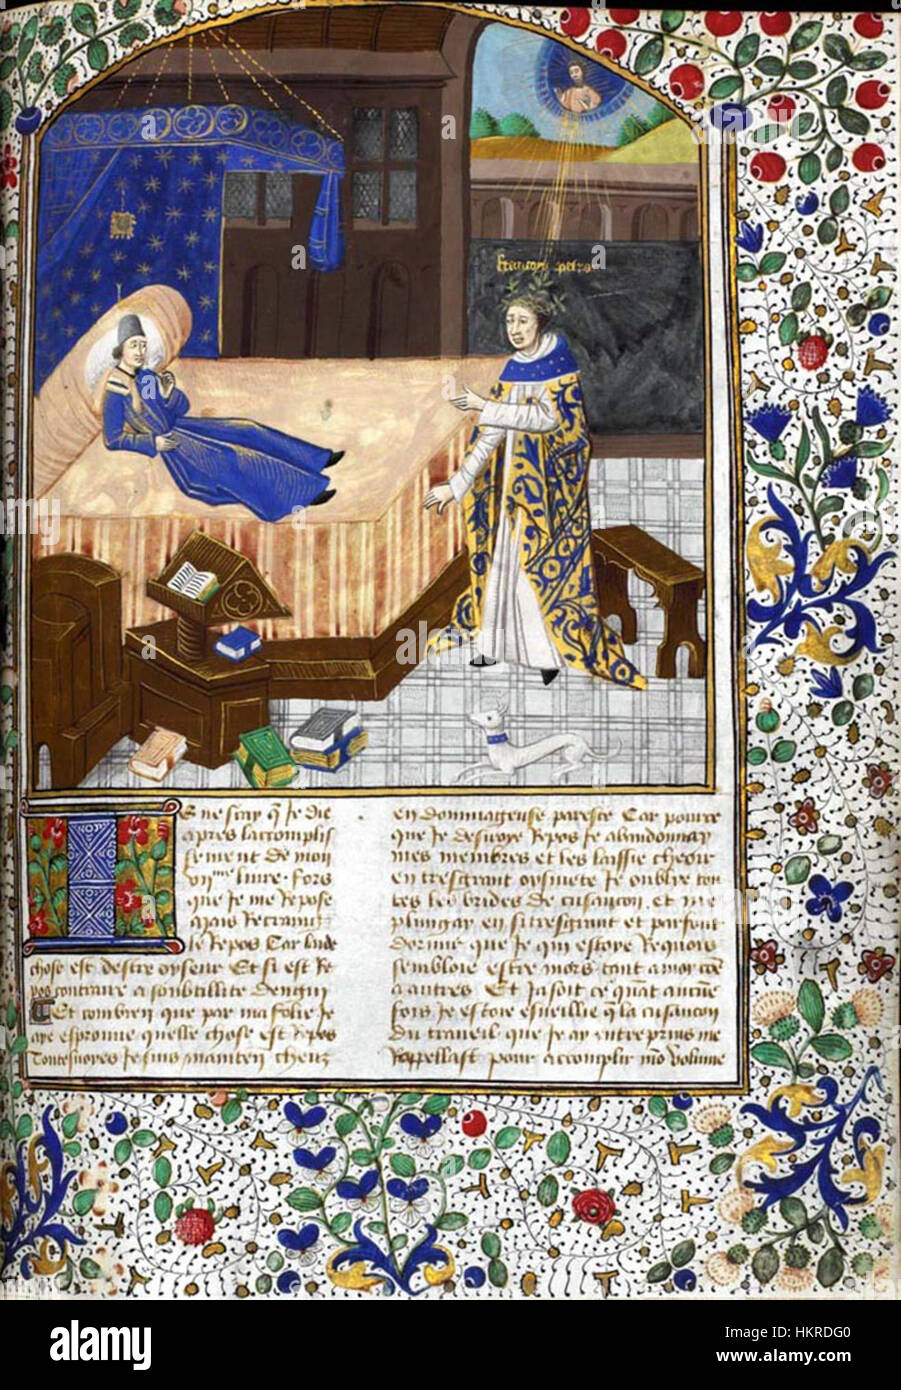 Francois petra
Je ne scay q̃ Je die
apres laccomplis
sement de mon
viii^me liure. fors
que Je me repose
le Repos Car lade
chose est destre oyseux Et si est Re
pos contraire a soubtillite dengin
Et combien que par ma folie Je
aye esprouue quelle chose est Repos
Je suis
en dommageuse paresce Car pource
que Je desiroye Repos Je abandonnay
mes membres et les laissie cheoir
en tresgrant oysiuete Je oublie tou
tes les brides de cusancon, et me
plungay en si tresgrant et parfont
dormir que Je qui estoye Requois
sembloie estre mors tant a moy cõe
a autres Et Jasoit ce quant aucune
fois Je estoie esueillie q̃ la cusancon
du trauail que Je ay entreprins me
Rappellast pour acomplir mõ volume
alamy
Image ID: HKRDG0
www.alamy.com